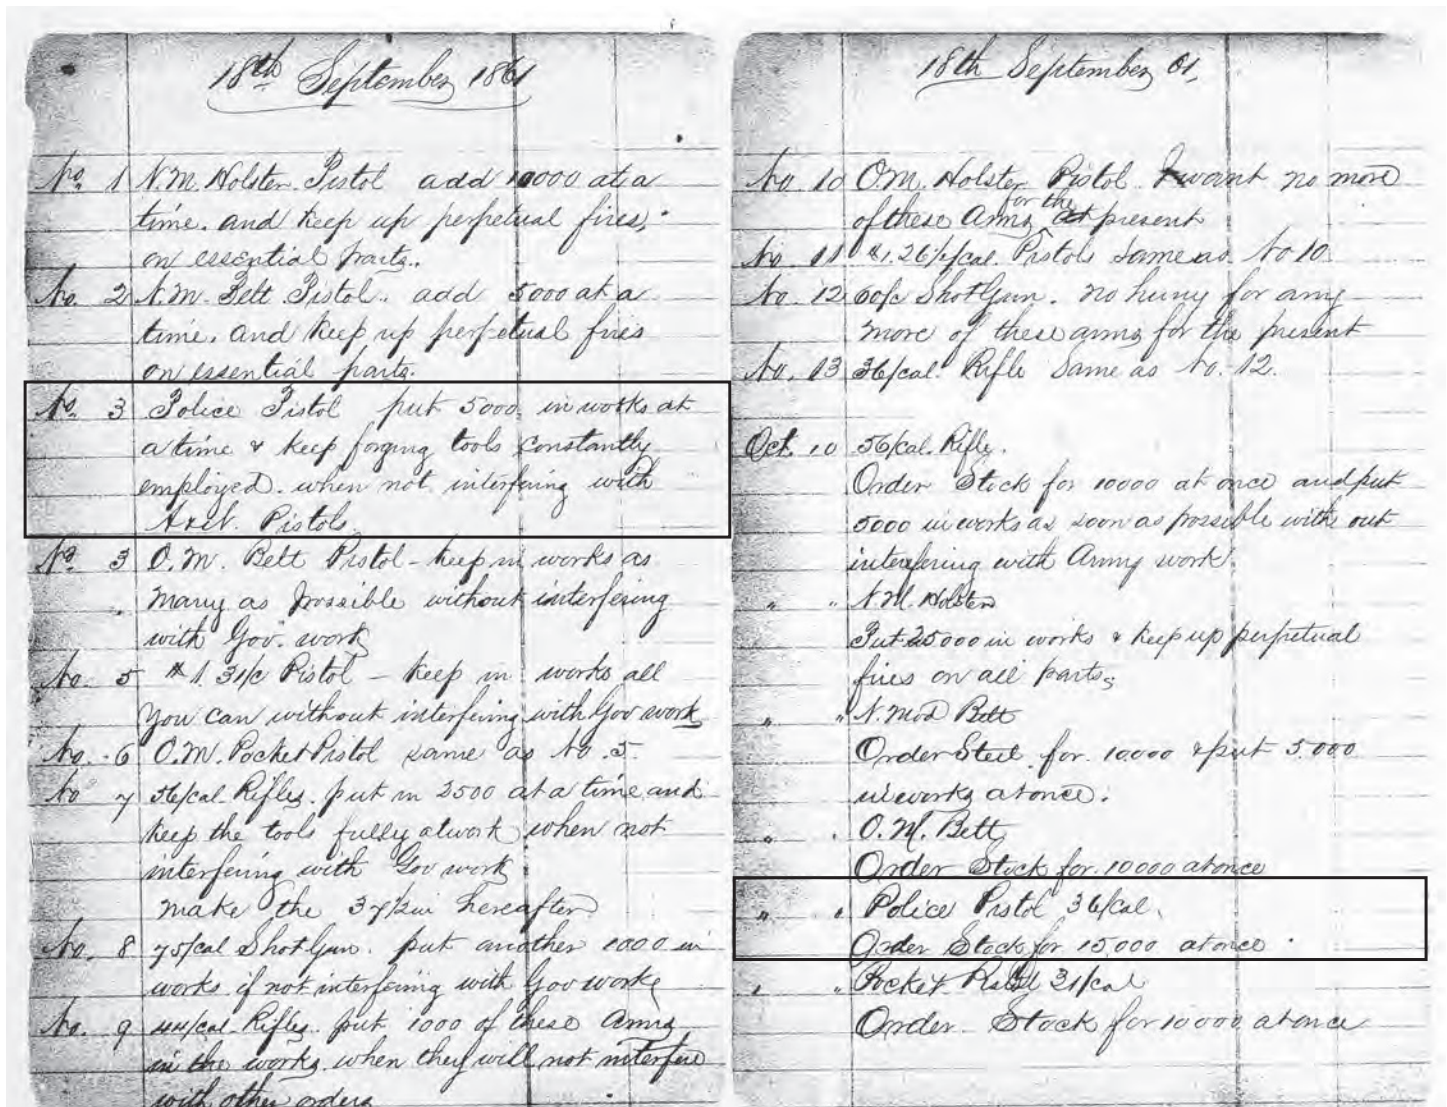 18th September 1861
No. 1 N.M. Holster Pistol add 10000 at a
time. and keep up perpetual fires,
on essential parts.
No. 2 N.M. Belt Pistol. add 5000 at a
time. and keep up perpetual fires
on essential parts.
No. 3 Police Pistol put 5000 in works at
a time & keep forging tools constantly
employed. when not interfering with
Pistols
No. 3 O.M. Belt Pistol - keep in works as
many as possible without interfering
with Gov. work
No. 5 #1. 31/c Pistol - keep in works all
you can without interfering with Gov work
No. 6 O.M. Pocket Pistol same as No. 5.
No 7 56/cal. Rifles. put in 2500 at a time and
keep the tools fully at work when not
interfering with Gov work.
make the 37 1/2 in hereafter
No. 8 75/cal Shot Gun. put another 1000 in
works if not interfering with Gov work
No. 9 44/cal Rifles. put 1000 of these Arms
in the works when they will not interfere
with other orders
18th September 61,
No 10 O.M. Holster Pistol. I want no more
of these Arms for the present
No 11 #1. 26 1/2/cal. Pistols same as No 10.
No. 12 60/c Shot Gun. no hurry for any
more of these arms for the present
No. 13 36/cal. Rifle Same as No. 12.
Oct. 10 56/cal. Rifle.
Order Stock for 10000 at once and put
5000 in works as soon as possible with out
interfering with Army work.
" " N.M. Holster
Put 25000 in works & keep up perpetual
fires on all parts,
" " N. Mod Belt
Order Steel for 10000 & put 5.000
in works at once.
" " O.M. Belt
Order Stock for 10000 at once
" " Police Pistol 36/cal.
Order Stock for 15,000 at once.
" " Pocket Pistol 31/cal
Order Stock for 10000 at once